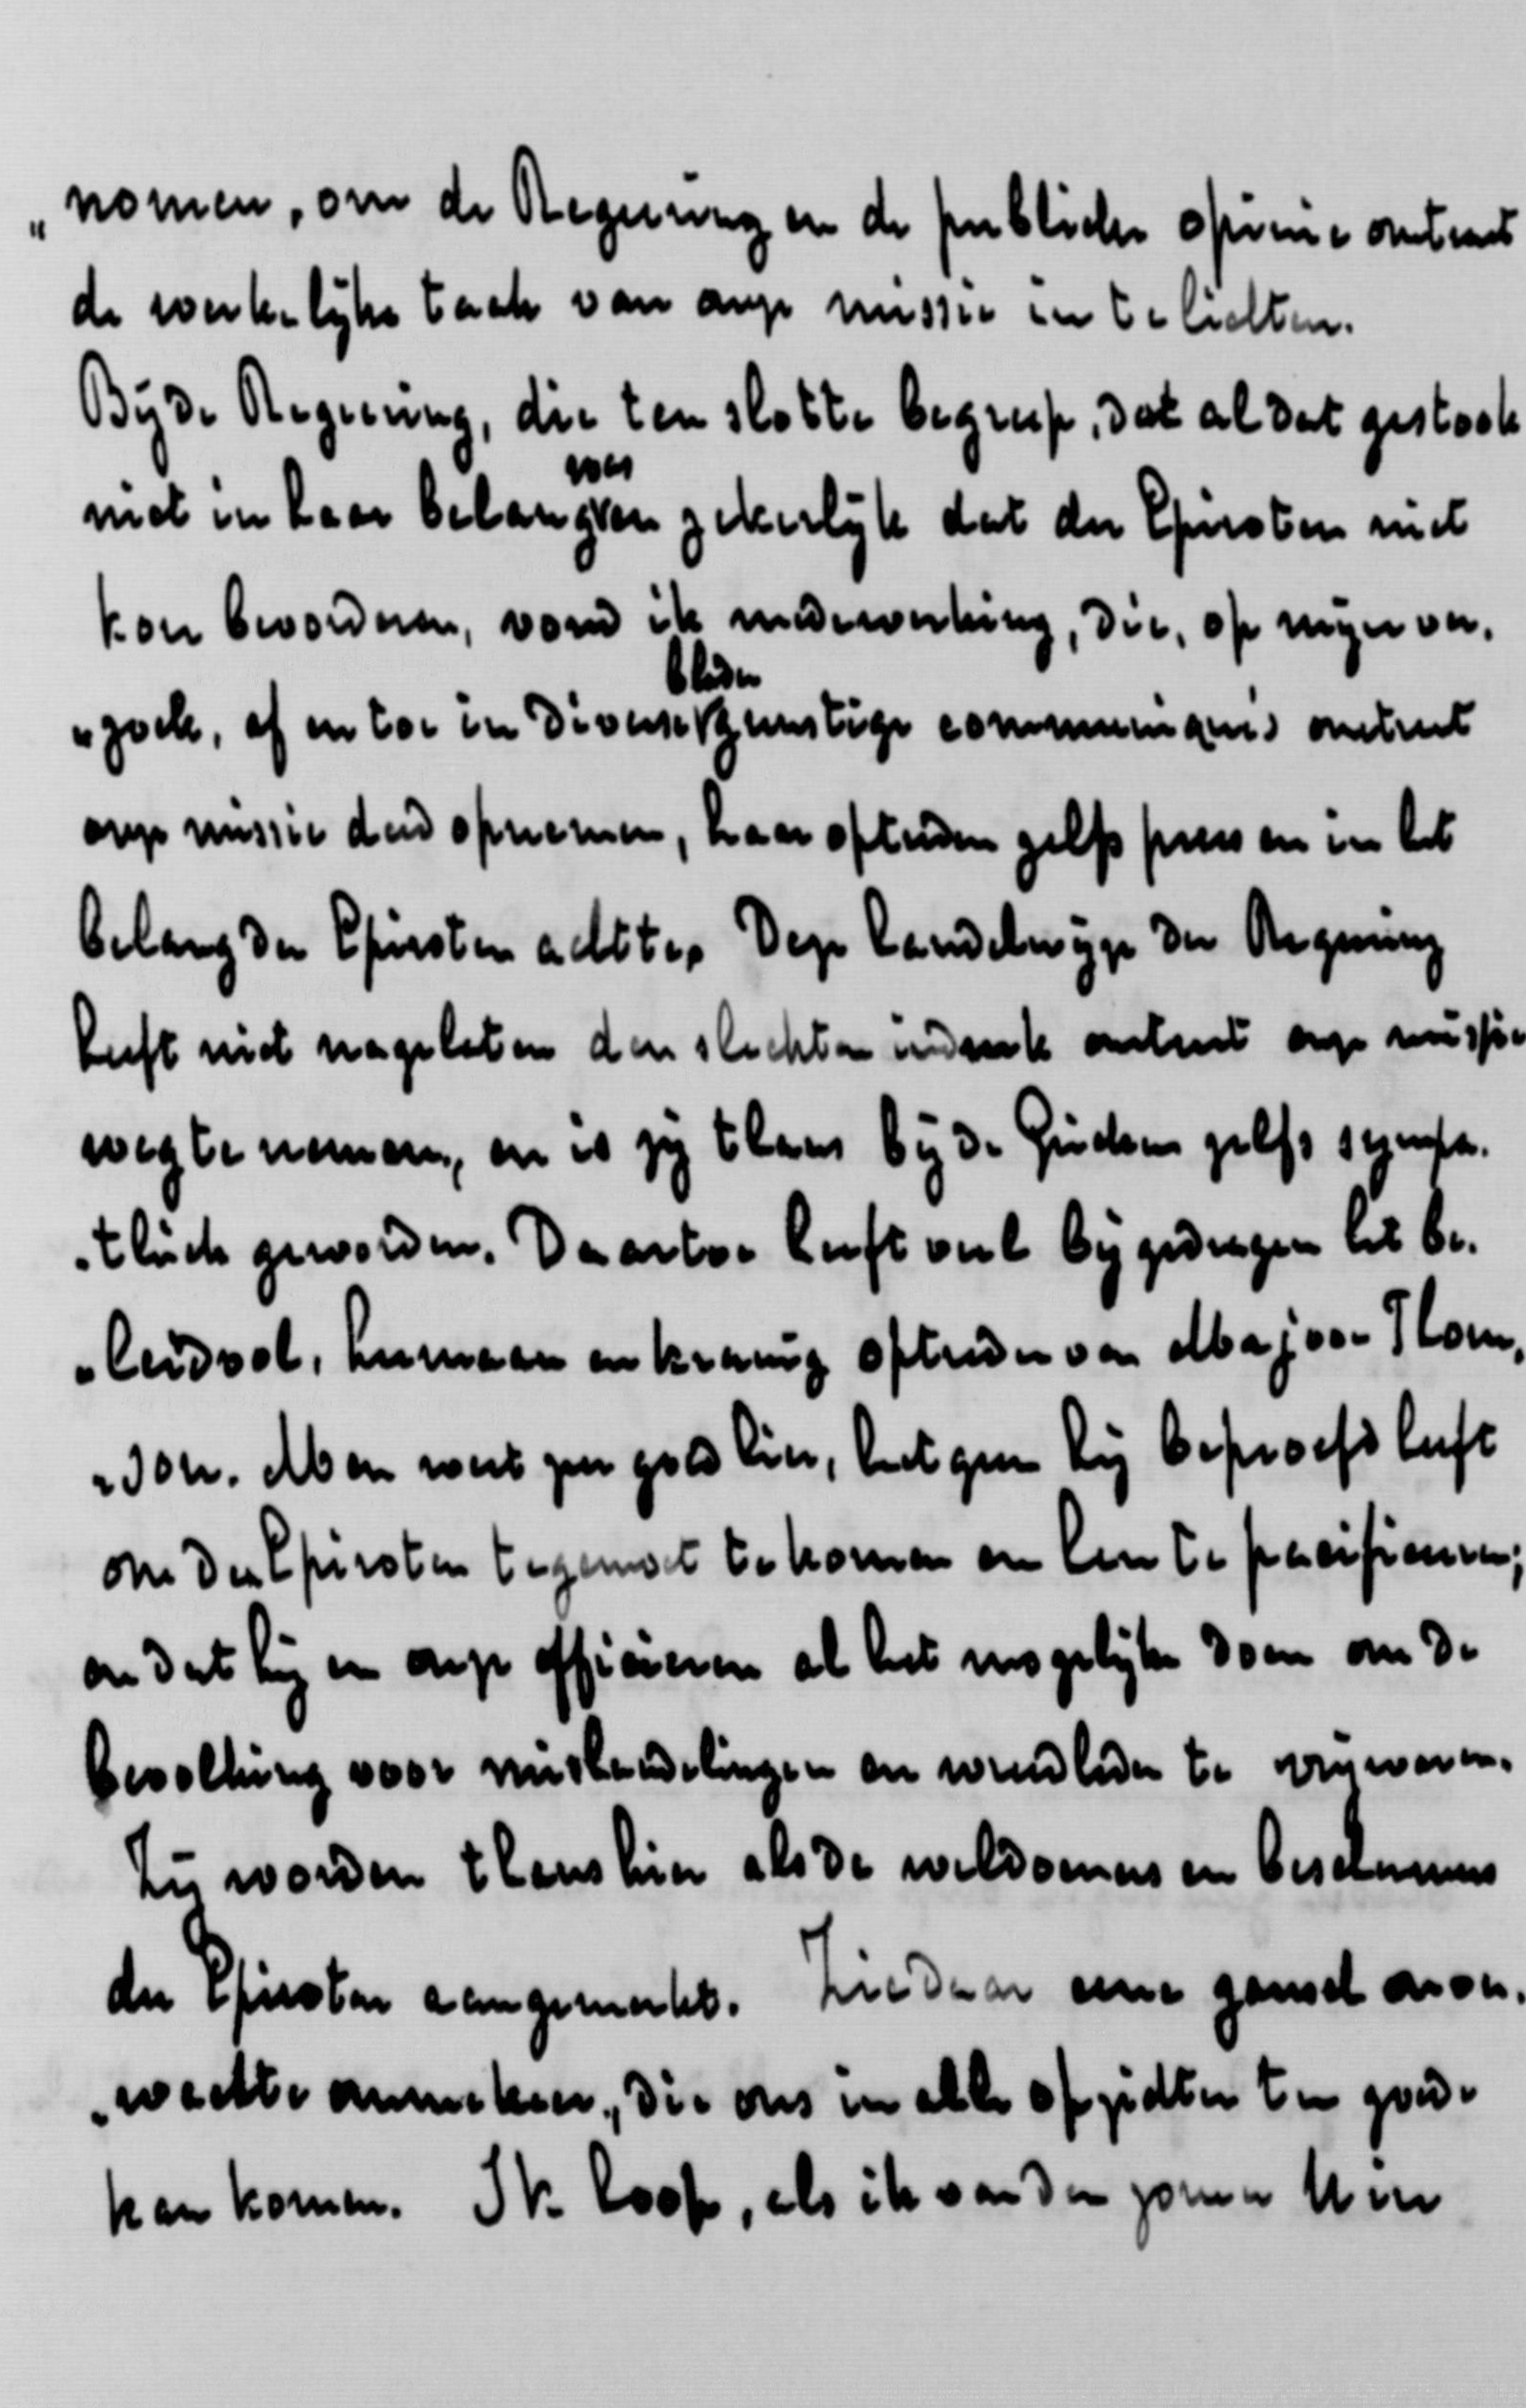 „nomen, om de Regeering en de publieke opinie omtrent
de werkelijke taak van onze missie in te lichten.
Bij de Regeering, die ten slotte begreep, dat al dat gestook
was
niet in haar belang en zekerlijk dat der Epiroten niet
kon bevorderen, vond ik medewerking, die, op mijn ver„
bladen
„zoek, af en toe in diverse gunstige communiqués omtrent
onze missie deed opnemen, haar optreden zelfs prees en in het
belang der Epiroten achtte. Deze handelwijze der Regeering
heeft niet nagelaten den slechten indruk omtrent onze missie
weg te nemen, en is zij thans bij de Grieken zelfs sympa„
„thiek geworden. Daartoe heeft veel bijgedragen het be„
„leidvol, humaan en kranig optreden van Majoor Thom„
„son. Men weet zeer goed hier, hetgeen hij beproefd heeft
om den Epiroten tegemoet te komen en hen te pacifieeren;
en dat hij en onze officieren al het mogelijke doen om de
bevolking voor mishandelingen en wreedheden te vrijwaren.
Zij worden thans hier als de weldoeners en beschermers
der Epiroten aangemerkt. Ziedaar eene gansch onver„
„wachte ommekeer, die ons in alle opzichten ten goede
kan komen. Ik hoop, als ik van den zomer Uwe